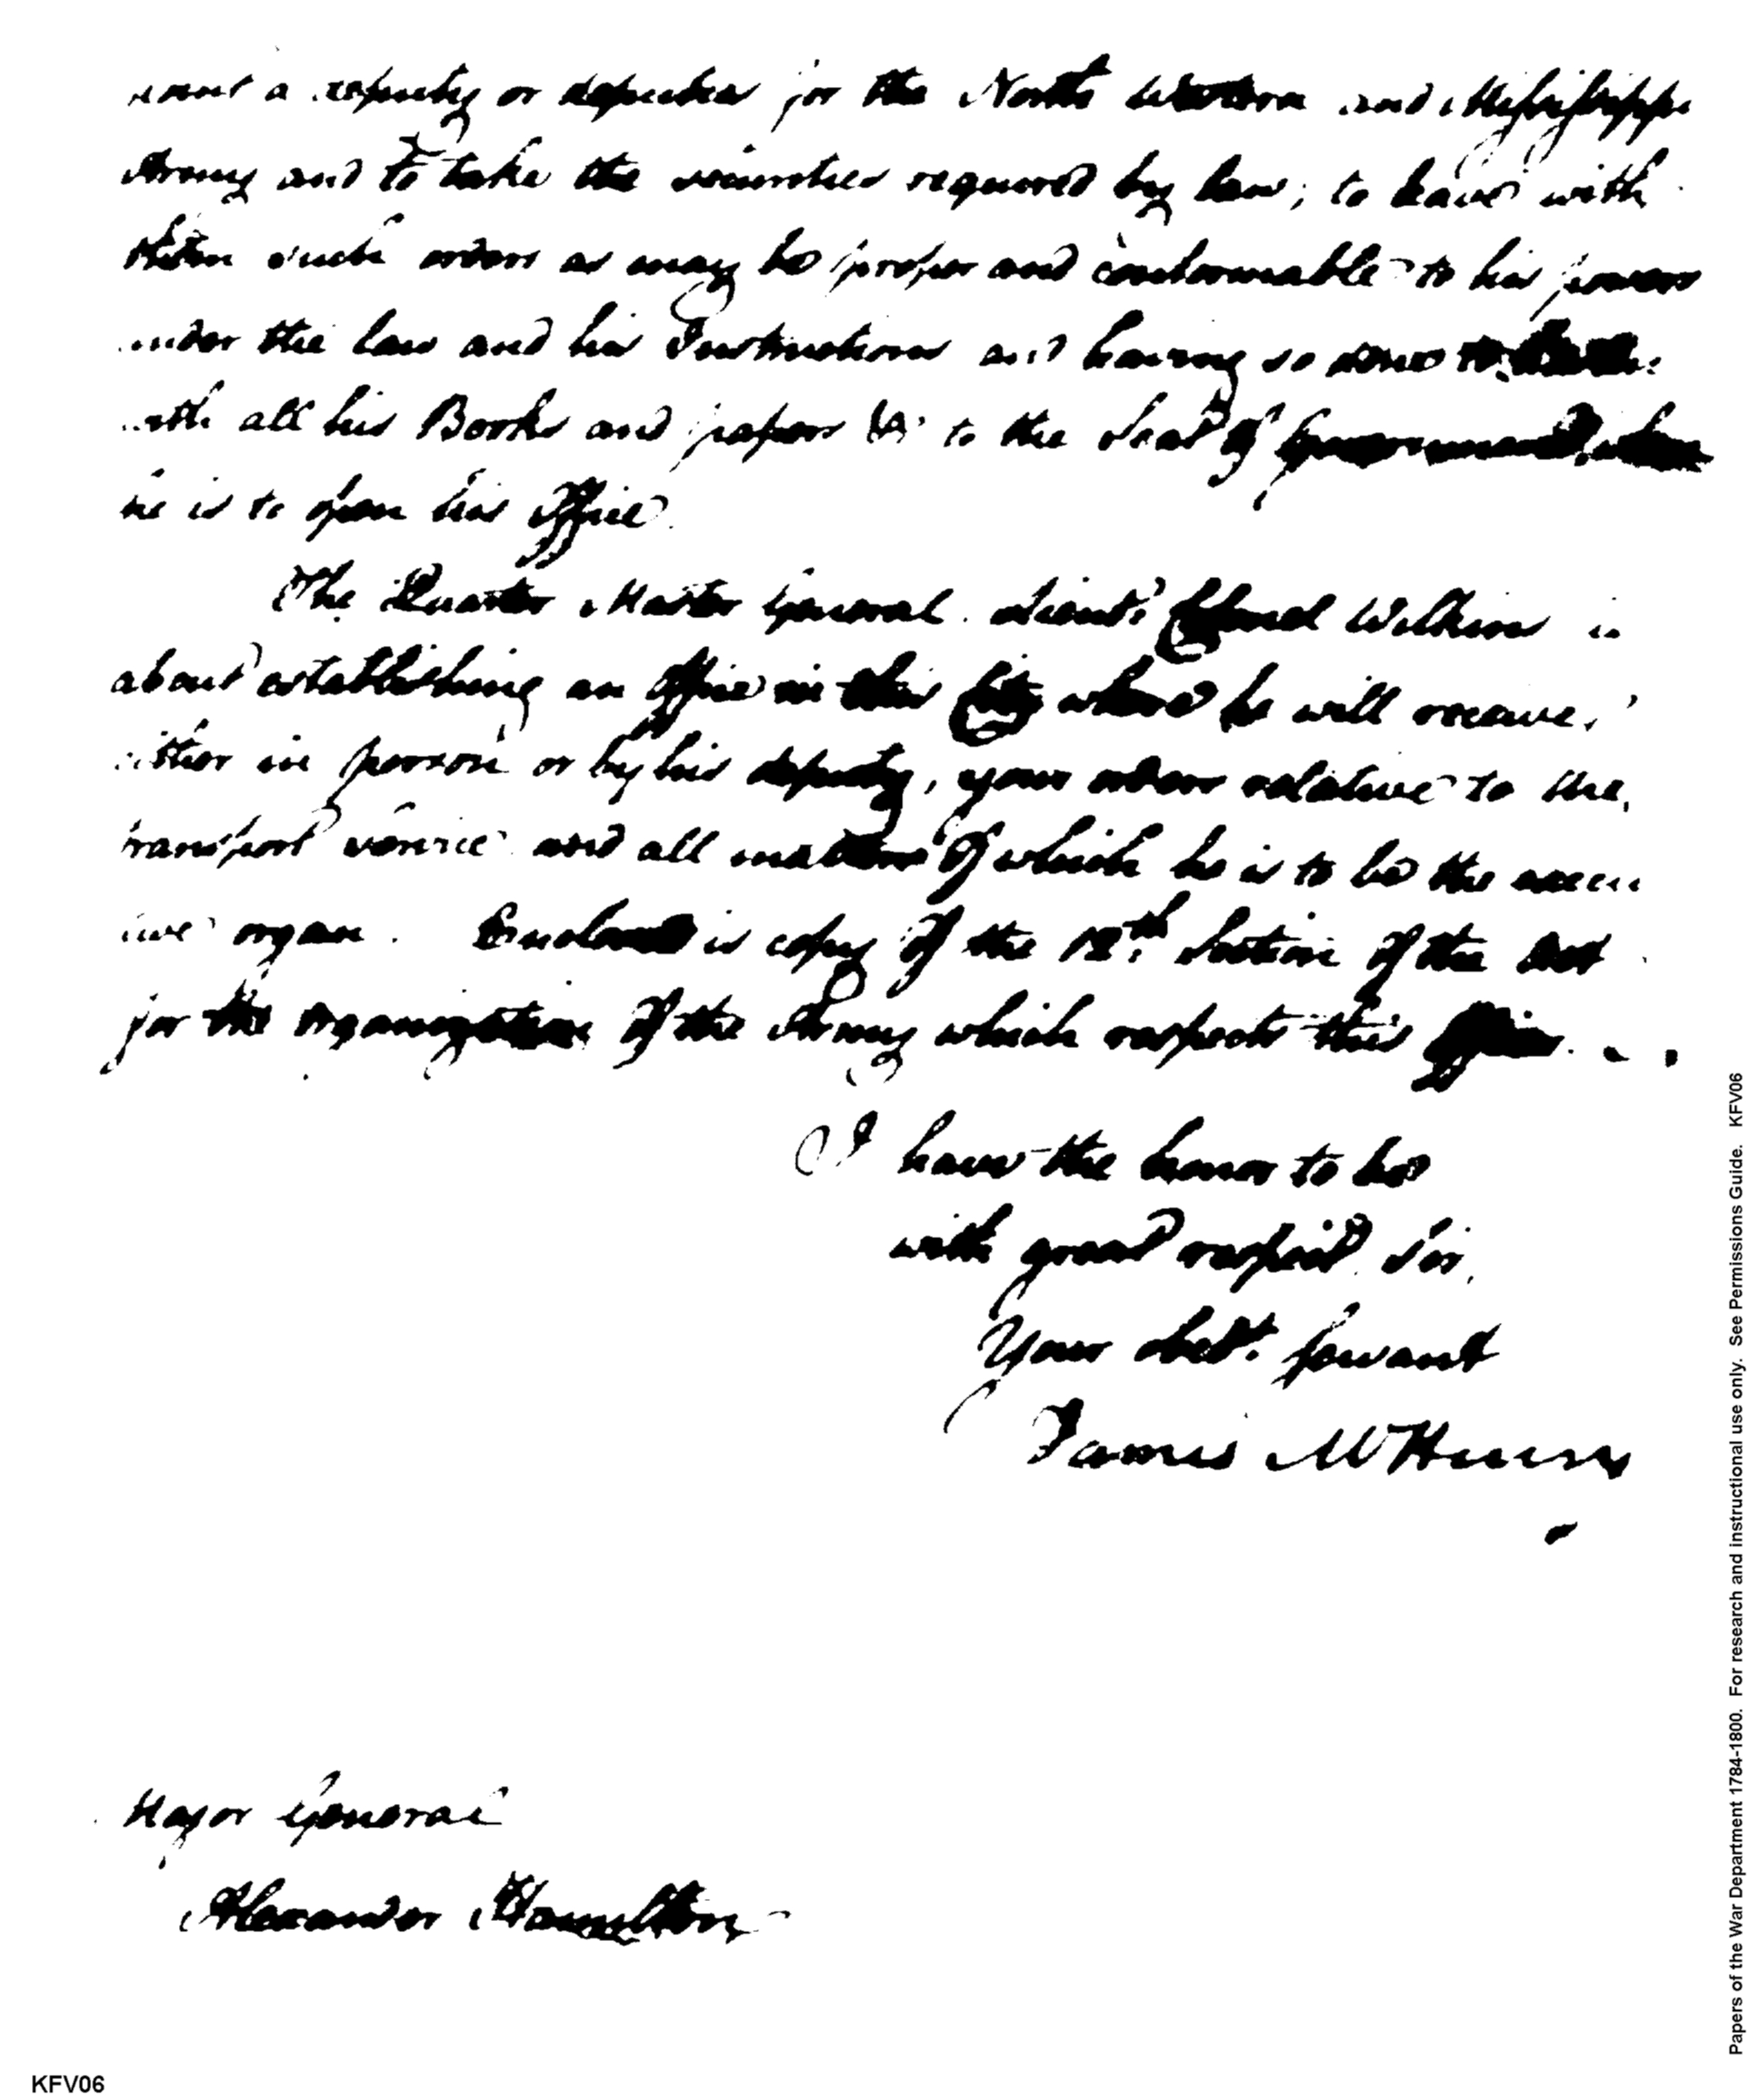 a deputy or deputies for the North Western and Mississippi
Army and to take the securities required by law; to leave with
them such orders as may be proper and conformable to his powers
under the law and his Instructions and having so done to
with all his Books and papers &c to the Seat of Government, where
he is to open his office.
The Quarter Master general. Lieut. Colonel Wilkins is
about establishing an office in this City where he will receive,
either in person or by his deputy, your orders relative to the,
transport service and all matters of which he is to be the execu
tive organ. Enclosed is copy of the 12th Section of the Act
for the organization of the Army which respects this officer.
I have the honor to be
with great respect, Sir,
Your obt. servant
James McHenry
Major General
Alexander Hamilton
Papers of the War Department 1784-1800. For research and instructional use only. See Permissions Guide. KFV06
KFV06